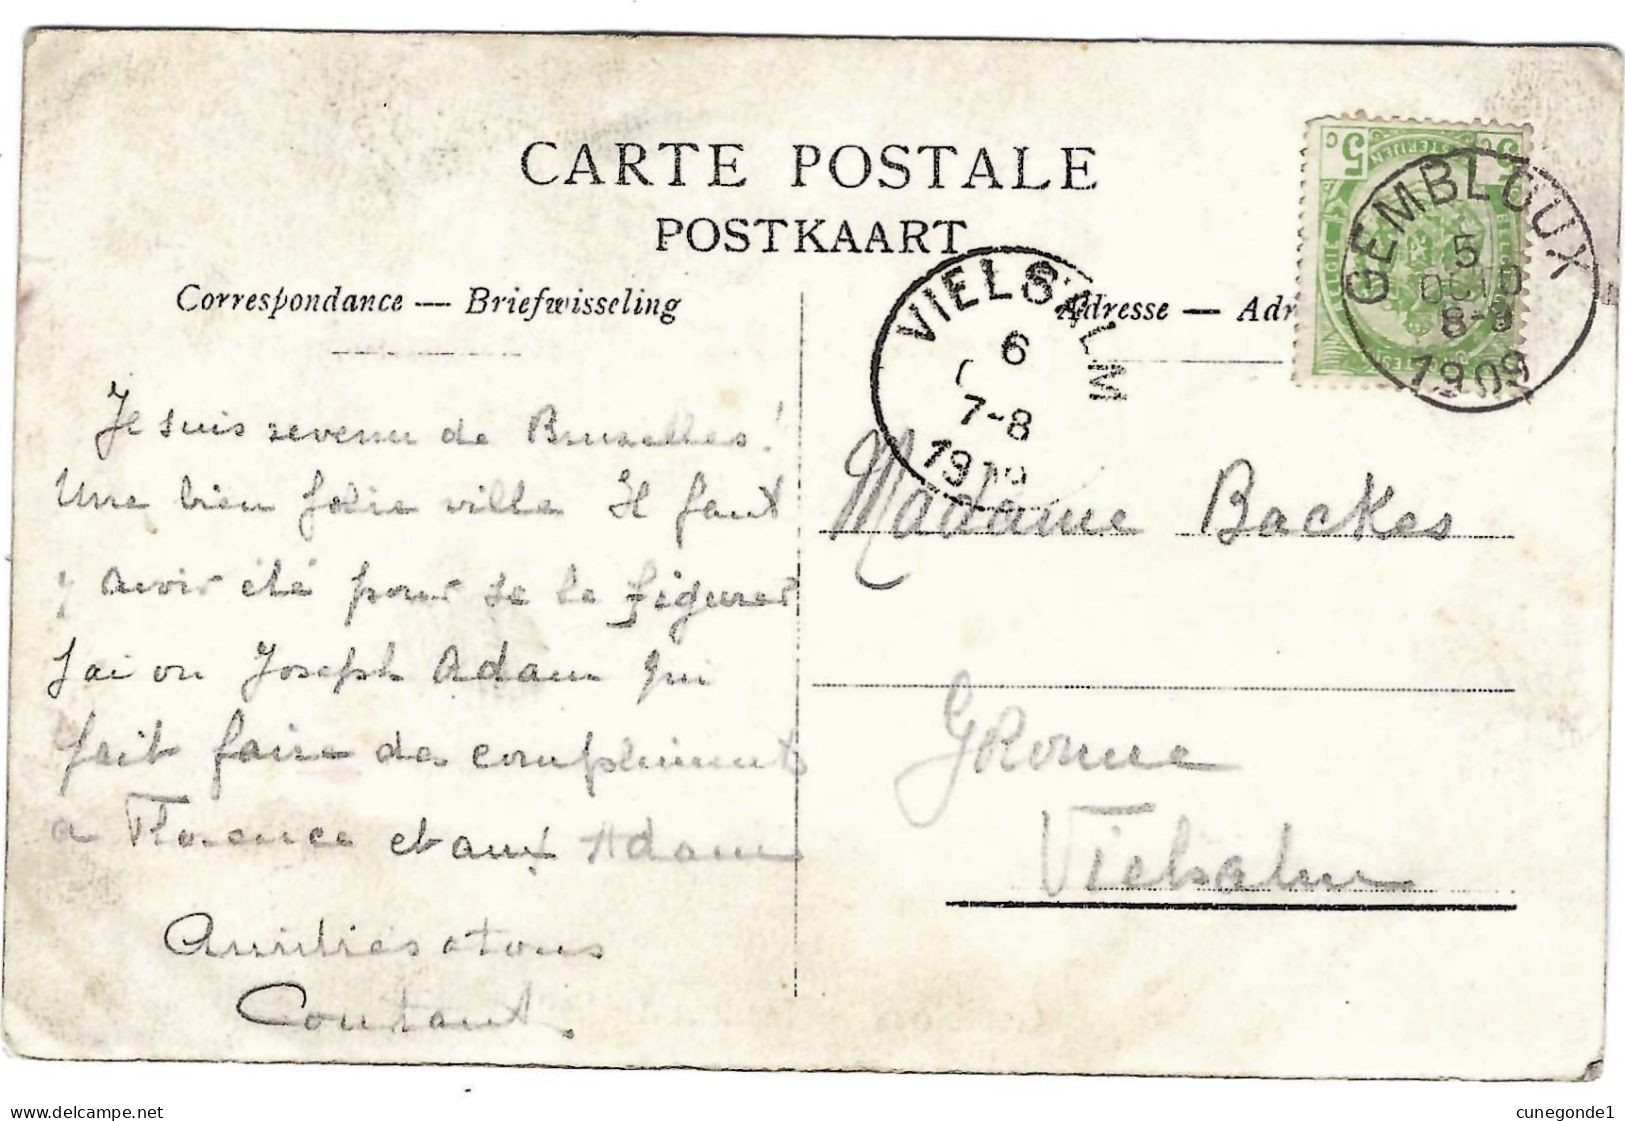 CARTE POSTALE
POSTKAART
Correspondance — Briefwisseling
Adresse — Adr
5 C
GEMBLOUX
5
OCTO
8-9
1909
VIELSALM
6
7-8
19
Je suis revenu de Bruxelles!
Une bien jolie ville Il faut
y avoir été pour se le figurer
J'ai vu Joseph Adam qui
fait faire des compliments
a Florence et aux Adam
Amitiés a tous
Constant.
Madame Backes
GRonne
Vielsalm
delcampe.net
cunegonde1